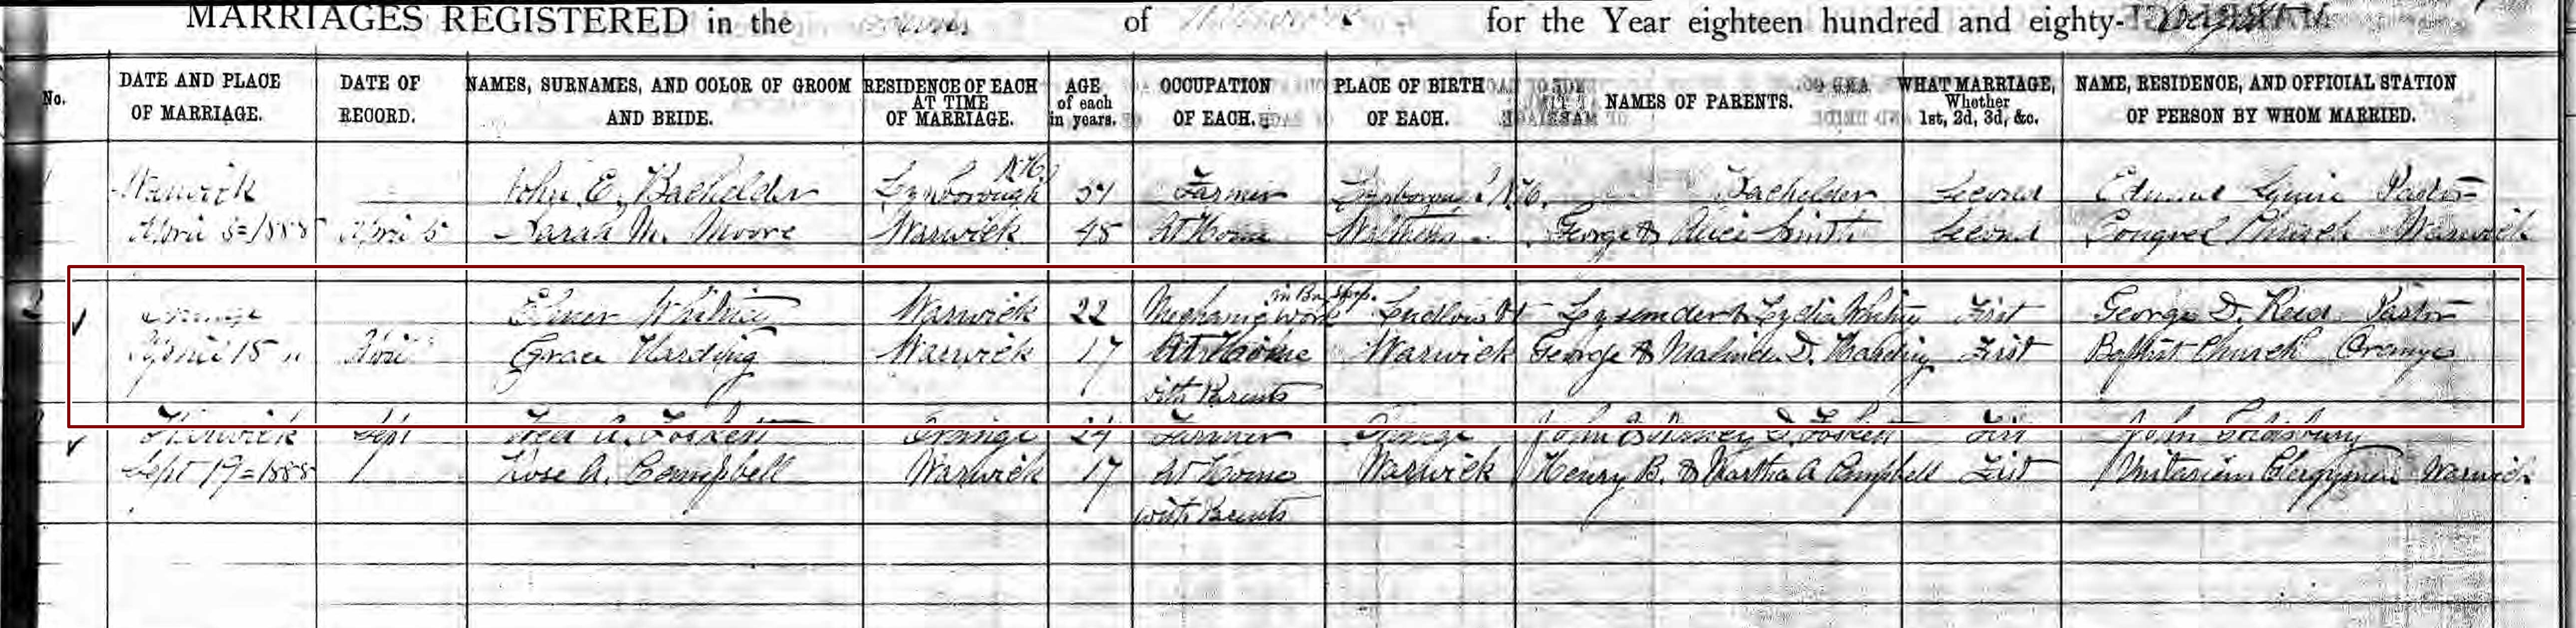 MARRIAGES REGISTERED in the of for the Year eighteen hundred and eighty-
No. DATE AND PLACE OF MARRIAGE. DATE OF RECORD. NAMES, SURNAMES, AND COLOR OF GROOM AND BRIDE. RESIDENCE OF EACH AT TIME OF MARRIAGE. AGE of each in years. OCCUPATION OF EACH. PLACE OF BIRTH OF EACH. NAMES OF PARENTS. WHAT MARRIAGE, Whether 1st, 2d, 3d, &c. NAME, RESIDENCE, AND OFFICIAL STATION OF PERSON BY WHOM MARRIED.
N.H.
1 Warwick John E. Bachelder Lyndborough 54 Farmer Lyndborough N.H. Bachelder Second Edmund Pastor
April 5=1888 April 5 Sarah M. Moore Warwick 48 At Home George & Alice Smith Second Congrel Church Warwick
in Box Shop.
2 Orange Elmer Whitney Warwick 22 Mechanic Work Ludlow Vt Lysander & Lydia Whitney First George D. Reed Pastor
April 15 " April Grace Harding Warwick 17 At Home Warwick George & Malinda D. Harding First Baptist Church Orange
with Parents
Warwick Sept Fred A. Foskett Orange 24 Farmer Orange John & D. Foskett First John Goldsbury
Sept 19=1888 Rose A. Campbell Warwick 17 At Home Warwick Henry B. & Martha A Campbell First Unitarian Clergyman Warwick
with Parents